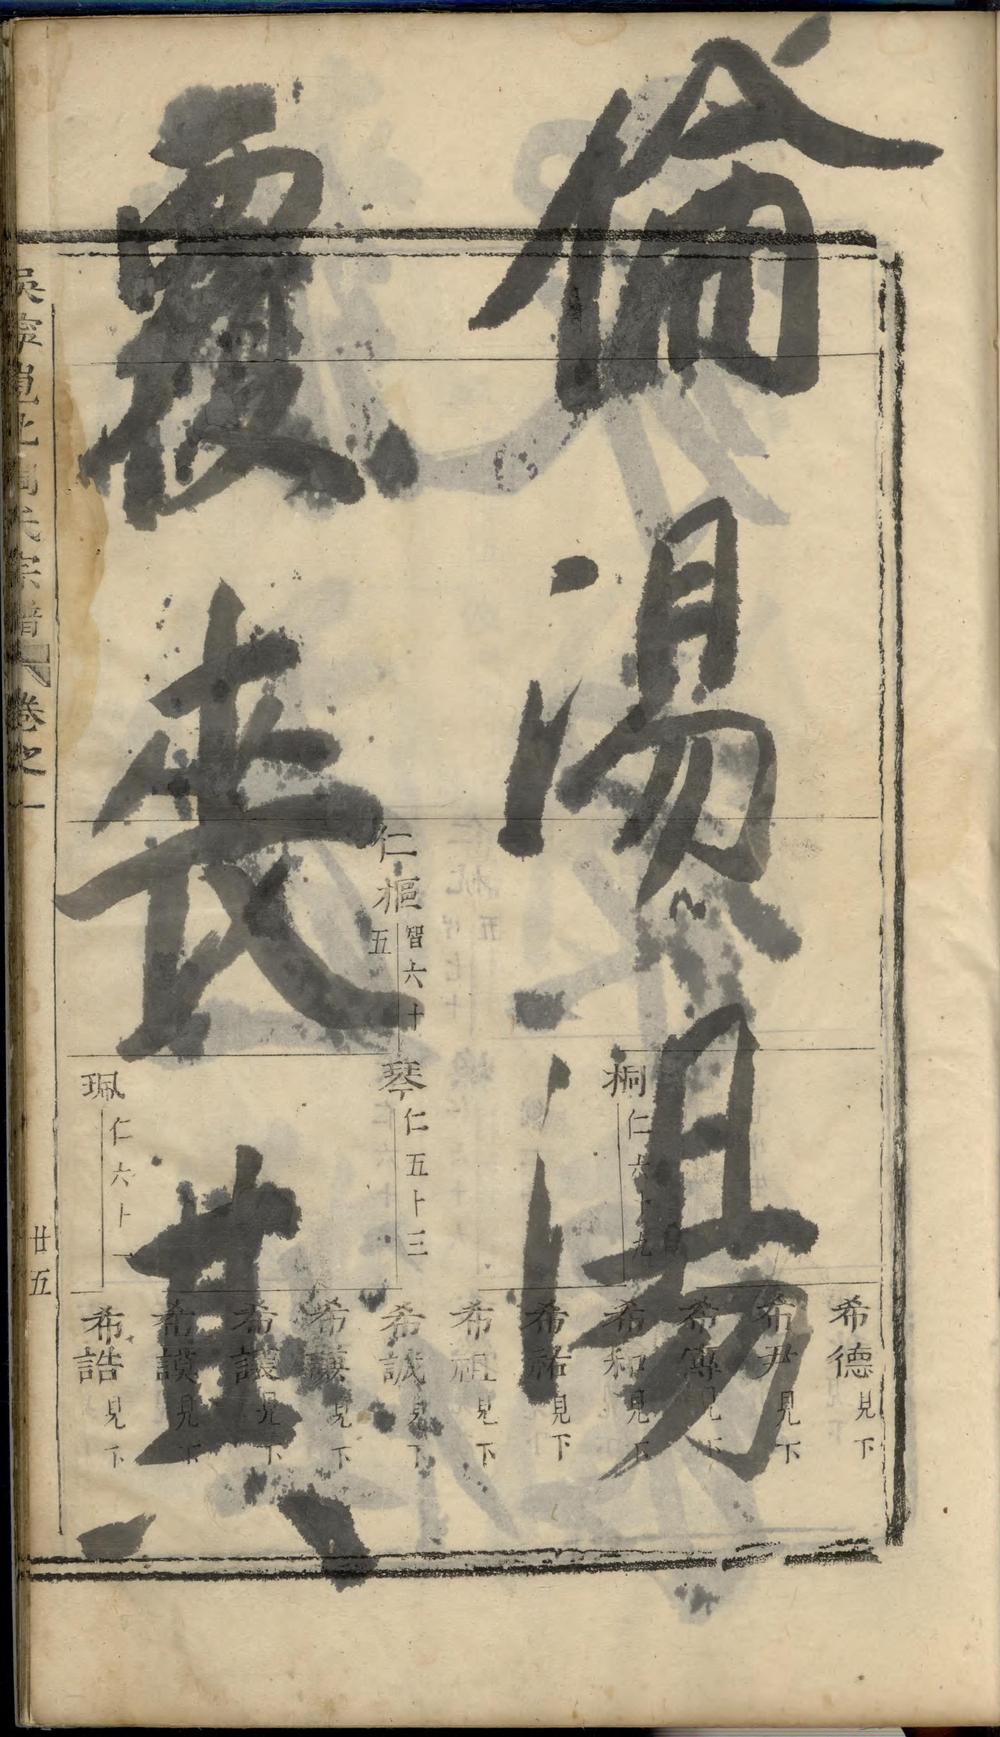 倫湯湯
覆喪其
仁樞 智六十五
桐 仁六十九
琴 仁五十三
珮 仁六十一
希德 見下
希尹 見下
希傳 見下
希和 見下
希祐 見下
希祖 見下
希誠 見下
希謙 見下
希 見下
希謨 見下
希誥 見下
吳寧 北周氏宗譜 卷之一
廿五